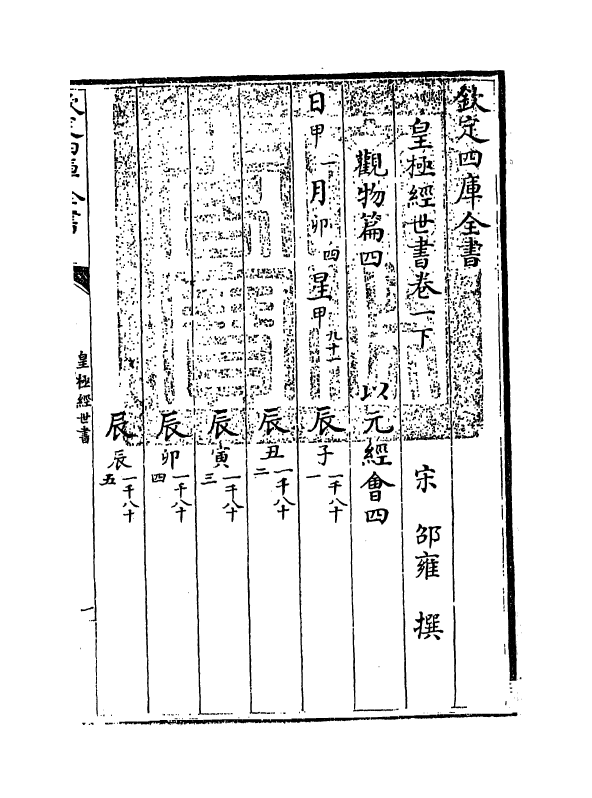 欽定四庫全書
皇極經世書卷一下 宋 邵雍 撰
觀物篇四 以元經會四
日甲一月卯四星甲九十一 辰子一千八十一
辰丑一千八十二
辰寅一千八十三
辰卯一千八十四
辰辰一千八十五
欽定四庫全書 皇極經世書 一